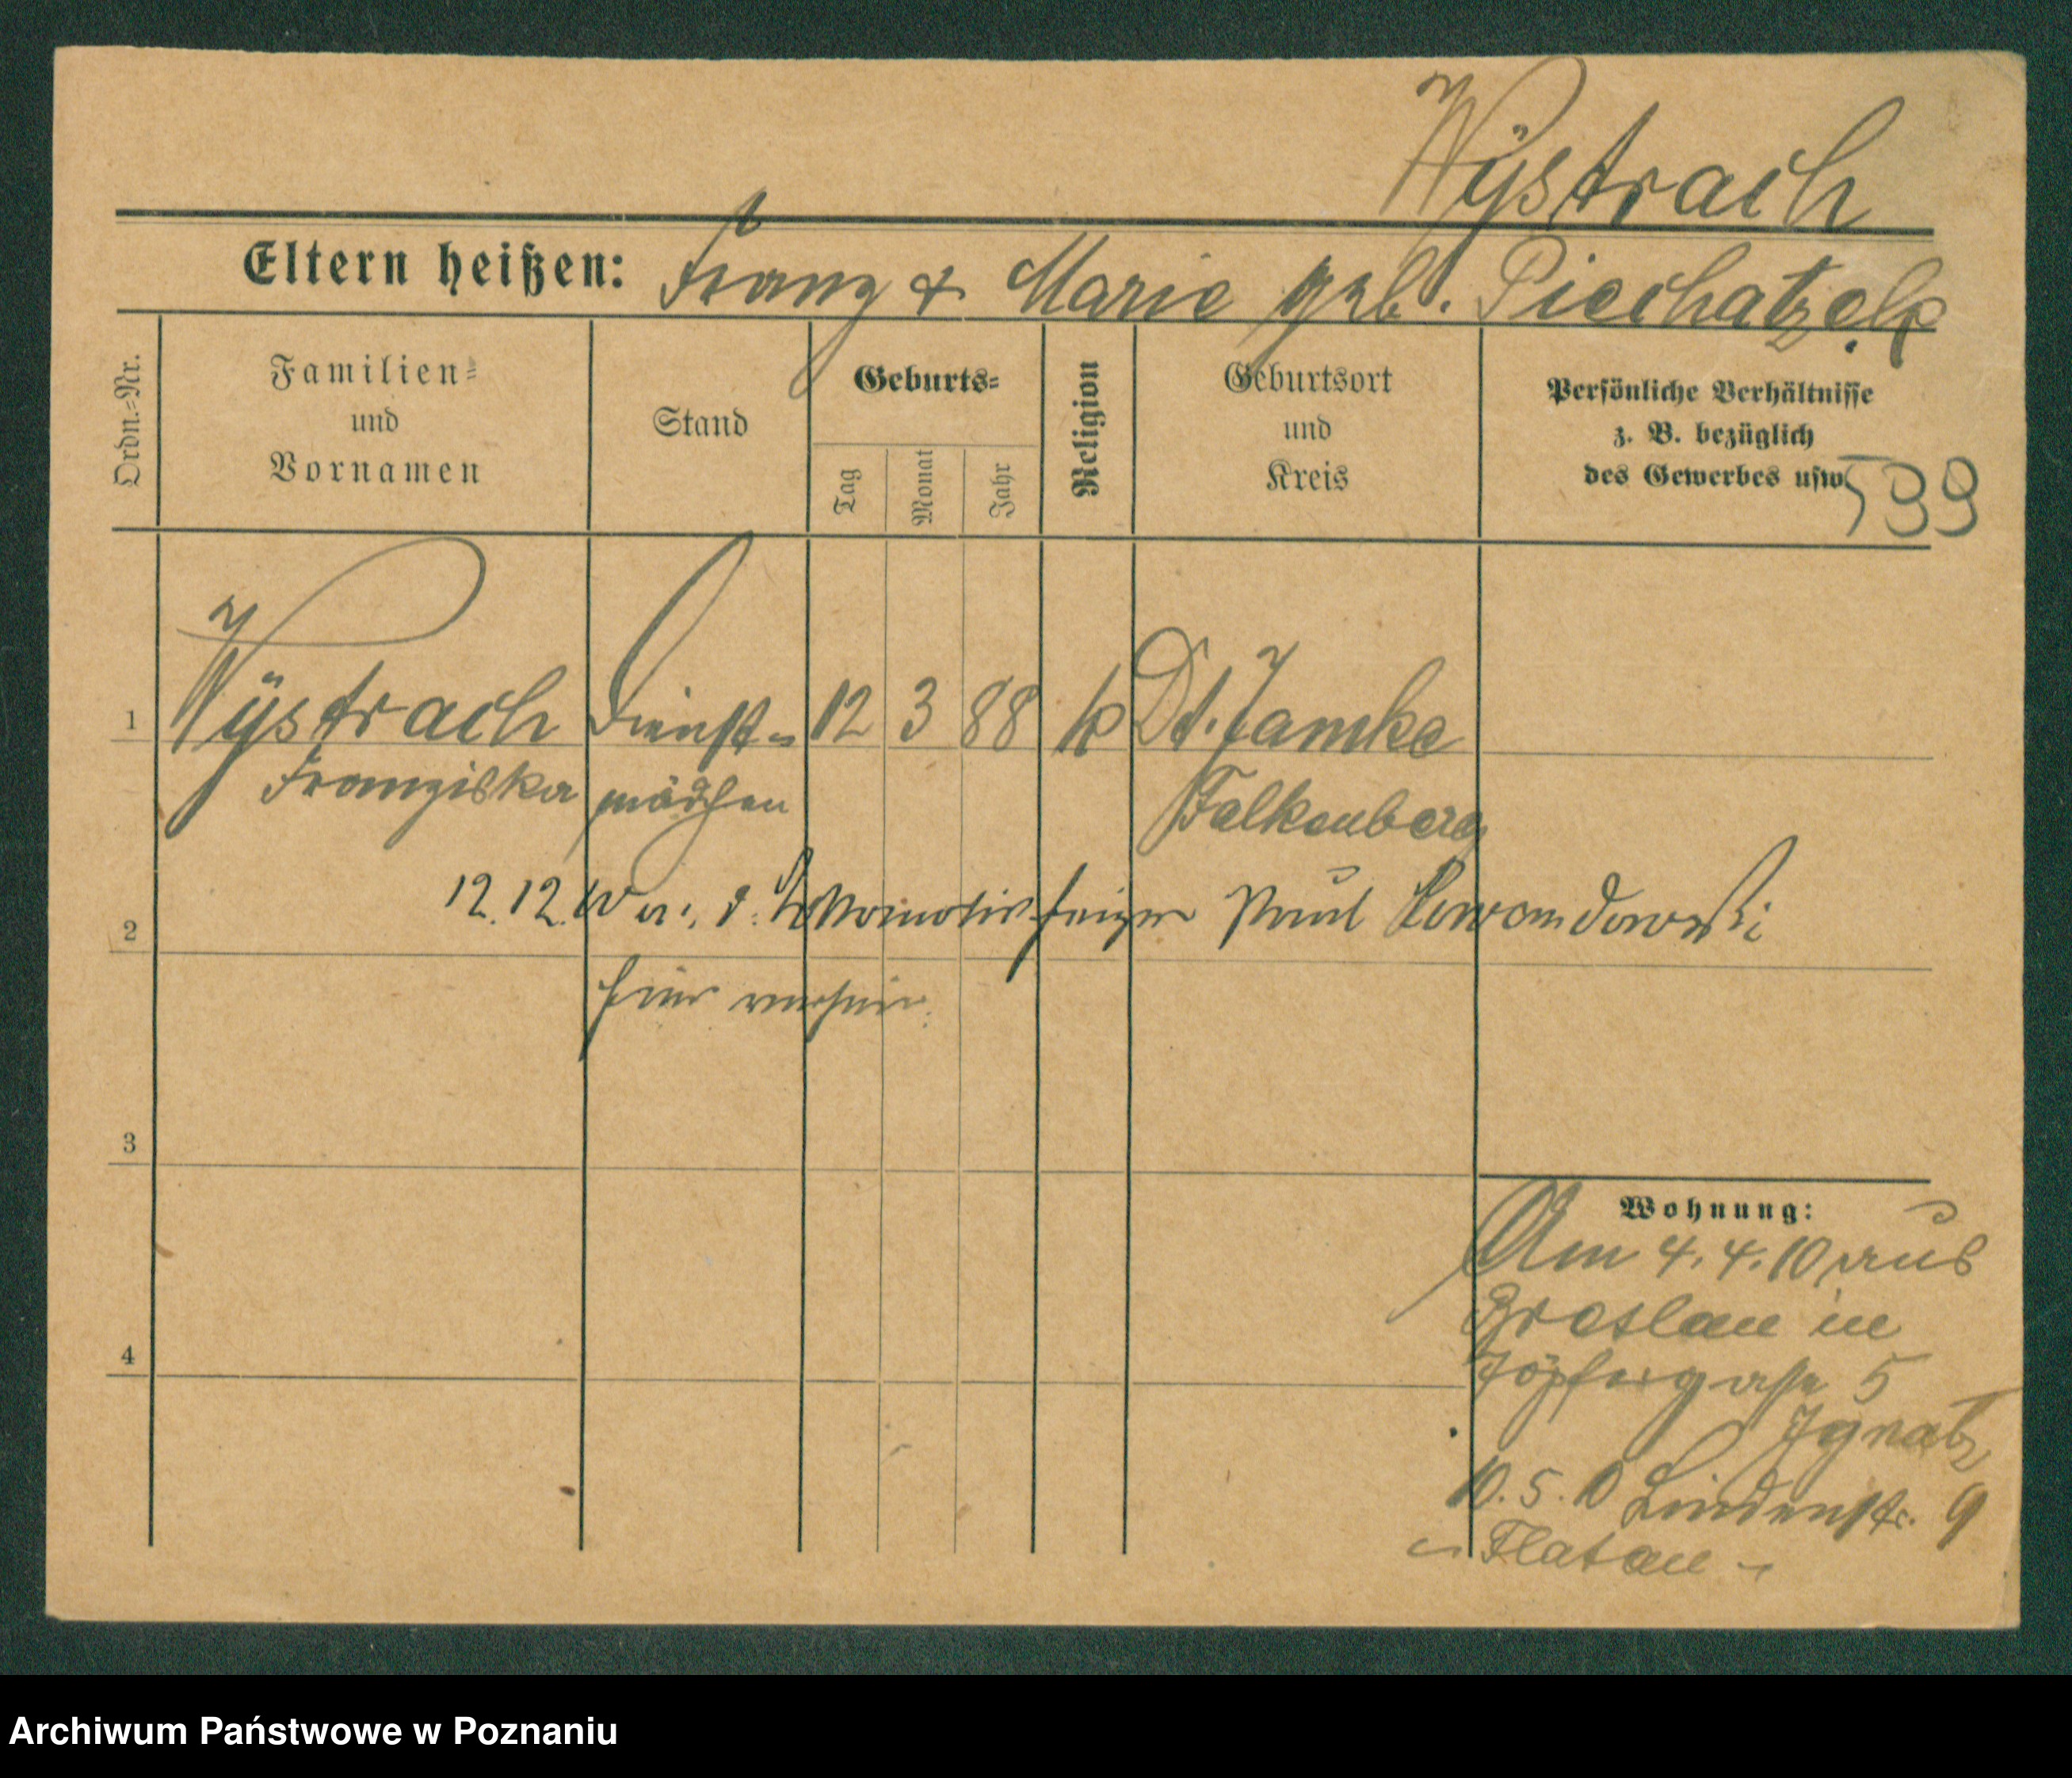 Wÿstrach
Eltern heißen: Franz & Marie geb. Piechatzek
Ordn.-Nr.
Familien-
und
Vornamen
Stand
Geburts-
Tag
Monat
Jahr
Religion
Geburtsort
und
Kreis
Persönliche Verhältnisse
z. B. bezüglich
des Gewerbes usw
599
1 Wÿstrach Dienst- 12 3 88 k Dt. Jamke
Franziska mädchen Falkenberg
12. 12. d. Lokomotivheizer Paul Lewandowski
2
hier verheir.
3
4
Wohnung:
Am 4. 4. 10 aus
Breslau in
Töpfergasse 5
Ignatz
10. 5. 10 Lindenstr. 9
Flatau
Archiwum Państwowe w Poznaniu